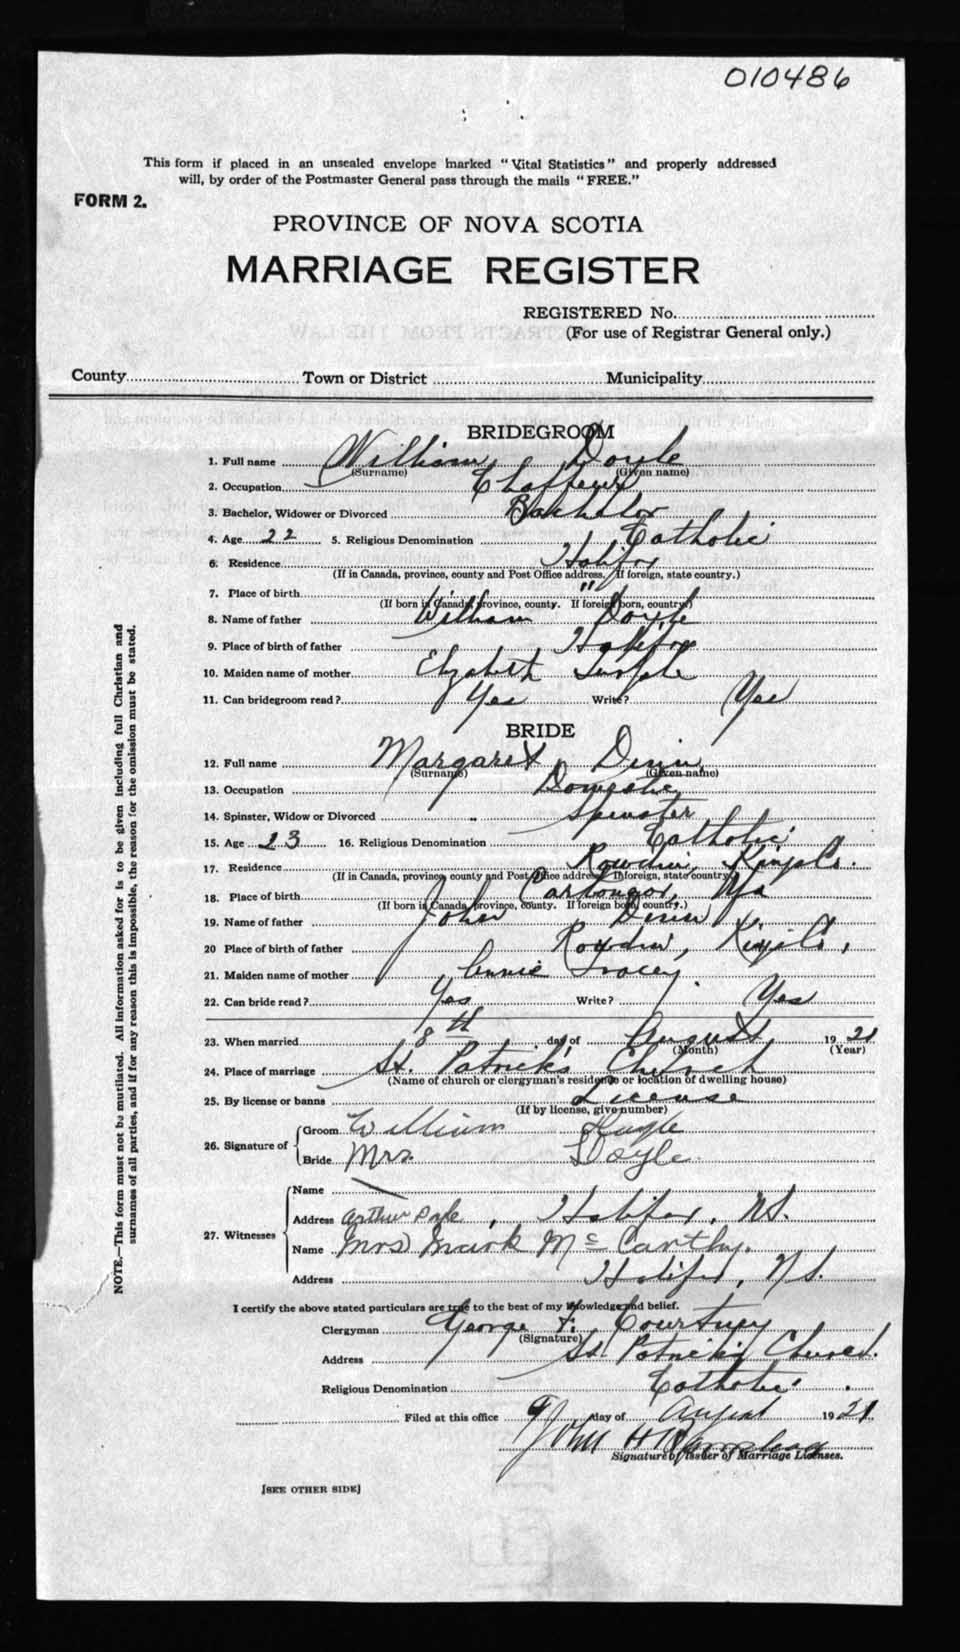 010486
This form if placed in an unsealed envelope marked "Vital Statistics" and properly addressed
will, by order of the Postmaster General pass through the mails "FREE."
FORM 2.
PROVINCE OF NOVA SCOTIA
MARRIAGE REGISTER
REGISTERED No.
(For use of Registrar General only.)
County Town or District Municipality
BRIDEGROOM
1. Full name William Doyle
(Surname) (Given name)
2. Occupation
3. Bachelor, Widower or Divorced Bachelor
4. Age 22 5. Religious Denomination Catholic
6. Residence Halifax
(If in Canada, province, county and Post Office address. If foreign, state country.)
7. Place of birth "
(If born in Canada, province, county. If foreign born, country.)
8. Name of father William Doyle
9. Place of birth of father Halifax
10. Maiden name of mother Elizabeth
11. Can bridegroom read? Yes Write? Yes
BRIDE
12. Full name Margaret Dinn
(Surname) (Given name)
13. Occupation Domestic
14. Spinster, Widow or Divorced Spinster
15. Age 23 16. Religious Denomination Catholic
17. Residence Kings Co.
(If in Canada, province, county and Post Office address. If foreign, state country.)
18. Place of birth
(If born in Canada, province, county. If foreign born, country.)
19. Name of father John Dinn
20 Place of birth of father Kings Co,
21. Maiden name of mother Annie Tracey
22. Can bride read? Yes Write? Yes
23. When married 8th day of August 1921
(Month) (Year)
24. Place of marriage St. Patrick's Church
(Name of church or clergyman's residence or location of dwelling house)
25. By license or banns License
(If by license, give number)
26. Signature of
Groom William
Bride Mrs. Doyle
27. Witnesses
Name
Address Arthur , Halifax, N.S.
Name Mrs Mark McCarthy.
Address Halifax, N.S.
I certify the above stated particulars are true to the best of my knowledge and belief.
Clergyman George F. Courtney
(Signature)
Address St Patrick's Church.
Religious Denomination Catholic
Filed at this office 9 day of August 1921
John H
Signature of Issuer of Marriage Licenses.
[SEE OTHER SIDE]
NOTE.—This form must not be mutilated. All information asked for is to be given including full Christian and
surnames of all parties, and if for any reason this is impossible, the reason for the omission must be stated.